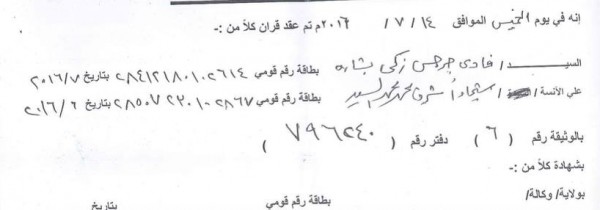 إنه في يوم الخميس الموافق ١٤ / ٧ / ٢٠١٦م تم عقد قران كلاً من :-
السيد / فادى جرجس زكى بشاره بطاقة رقم قومي ٢٨٤١٢١٨٠١٠٢٦١٤ بتاريخ ٢٠١٦/٧
على الأنسة / شيماء أشرف محمد محمد السيد بطاقة رقم قومي ٢٨٥٠٧٢٢٠١٠٢٨٦٧ بتاريخ ٢٠١٦/٦
بالوثيقة رقم ( ٦ ) دفتر رقم ( ٧٩٦٢٤٠ )
بشهادة كلاً من :-
بولاية/ وكالة/ بطاقة رقم قومي بتاريخ